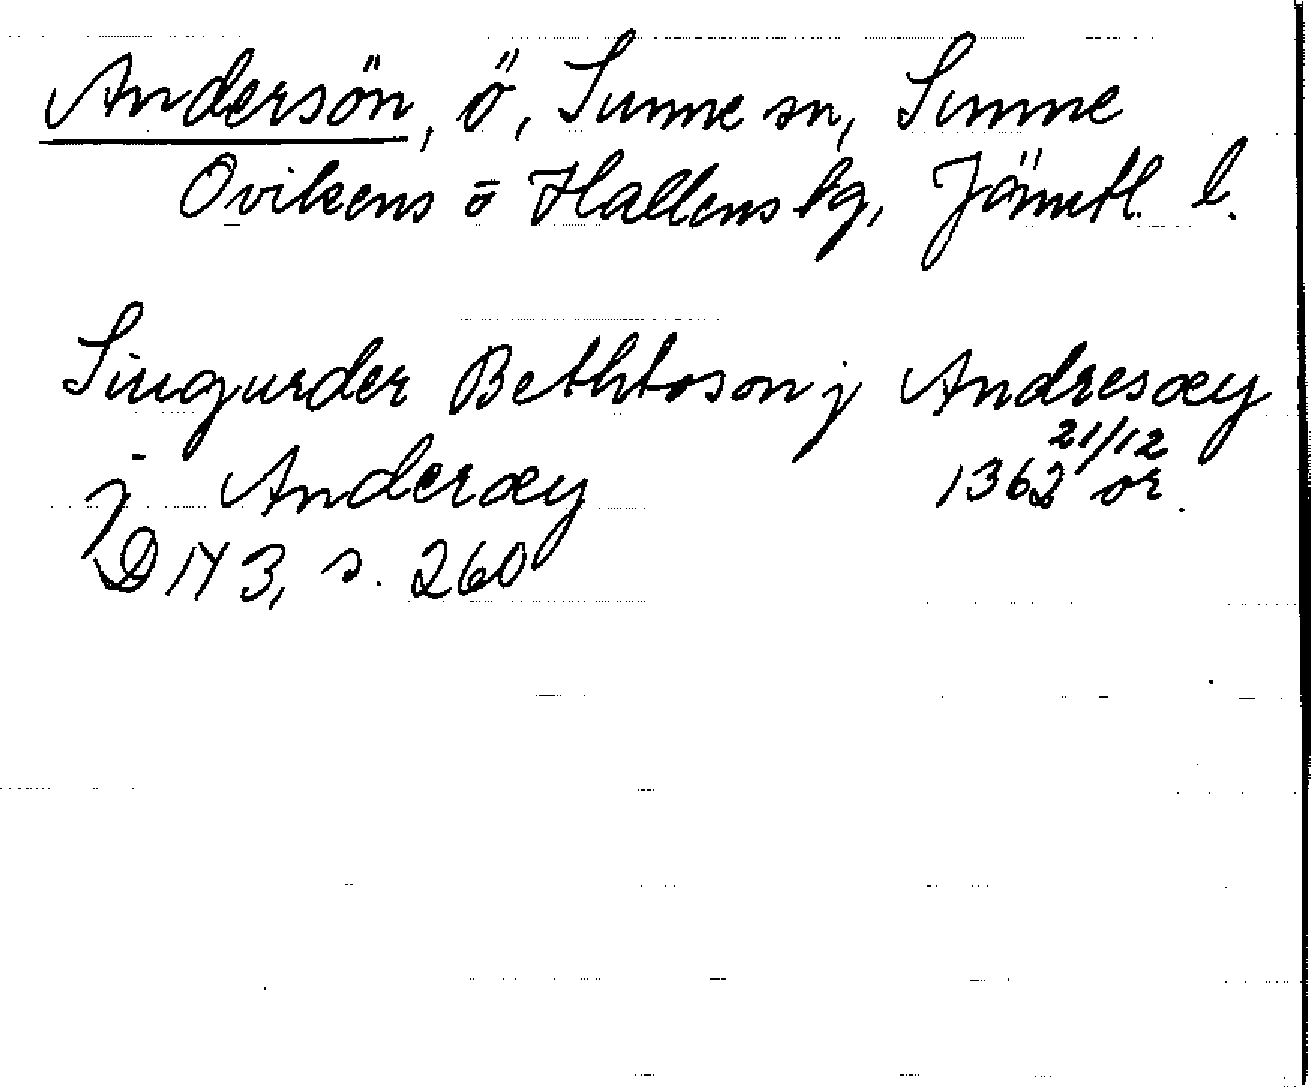 Andersön, ö, Sunne sn, Sunne
Ovikens o Hallens tg, Jämtl. l.
Siugurder Bethtoson j Andresæy
21/12
j Anderæy 1362 or.
DN 3, s. 260